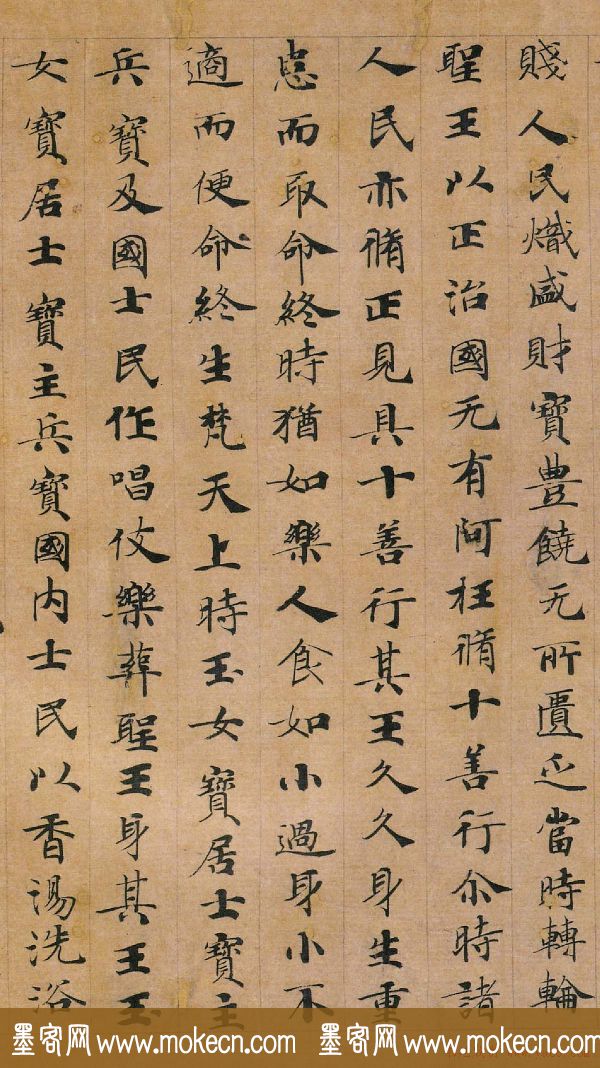 賤人民熾盛財寶豊饒无所匱乏當時轉輪
聖王以正治國无有阿枉脩十善行尒時諸
人民亦脩正見具十善行其王久久身生重
患而取命終時猶如樂人食如小過身小不
適而便命終生梵天上時玉女寶居士寶主
兵寶及國士民作唱伎樂葬聖王身其王玉
女寶居士寶主兵寶國内士民以香湯洗浴
墨客网 www.mokecn.com 墨客网 www.mokecn.com